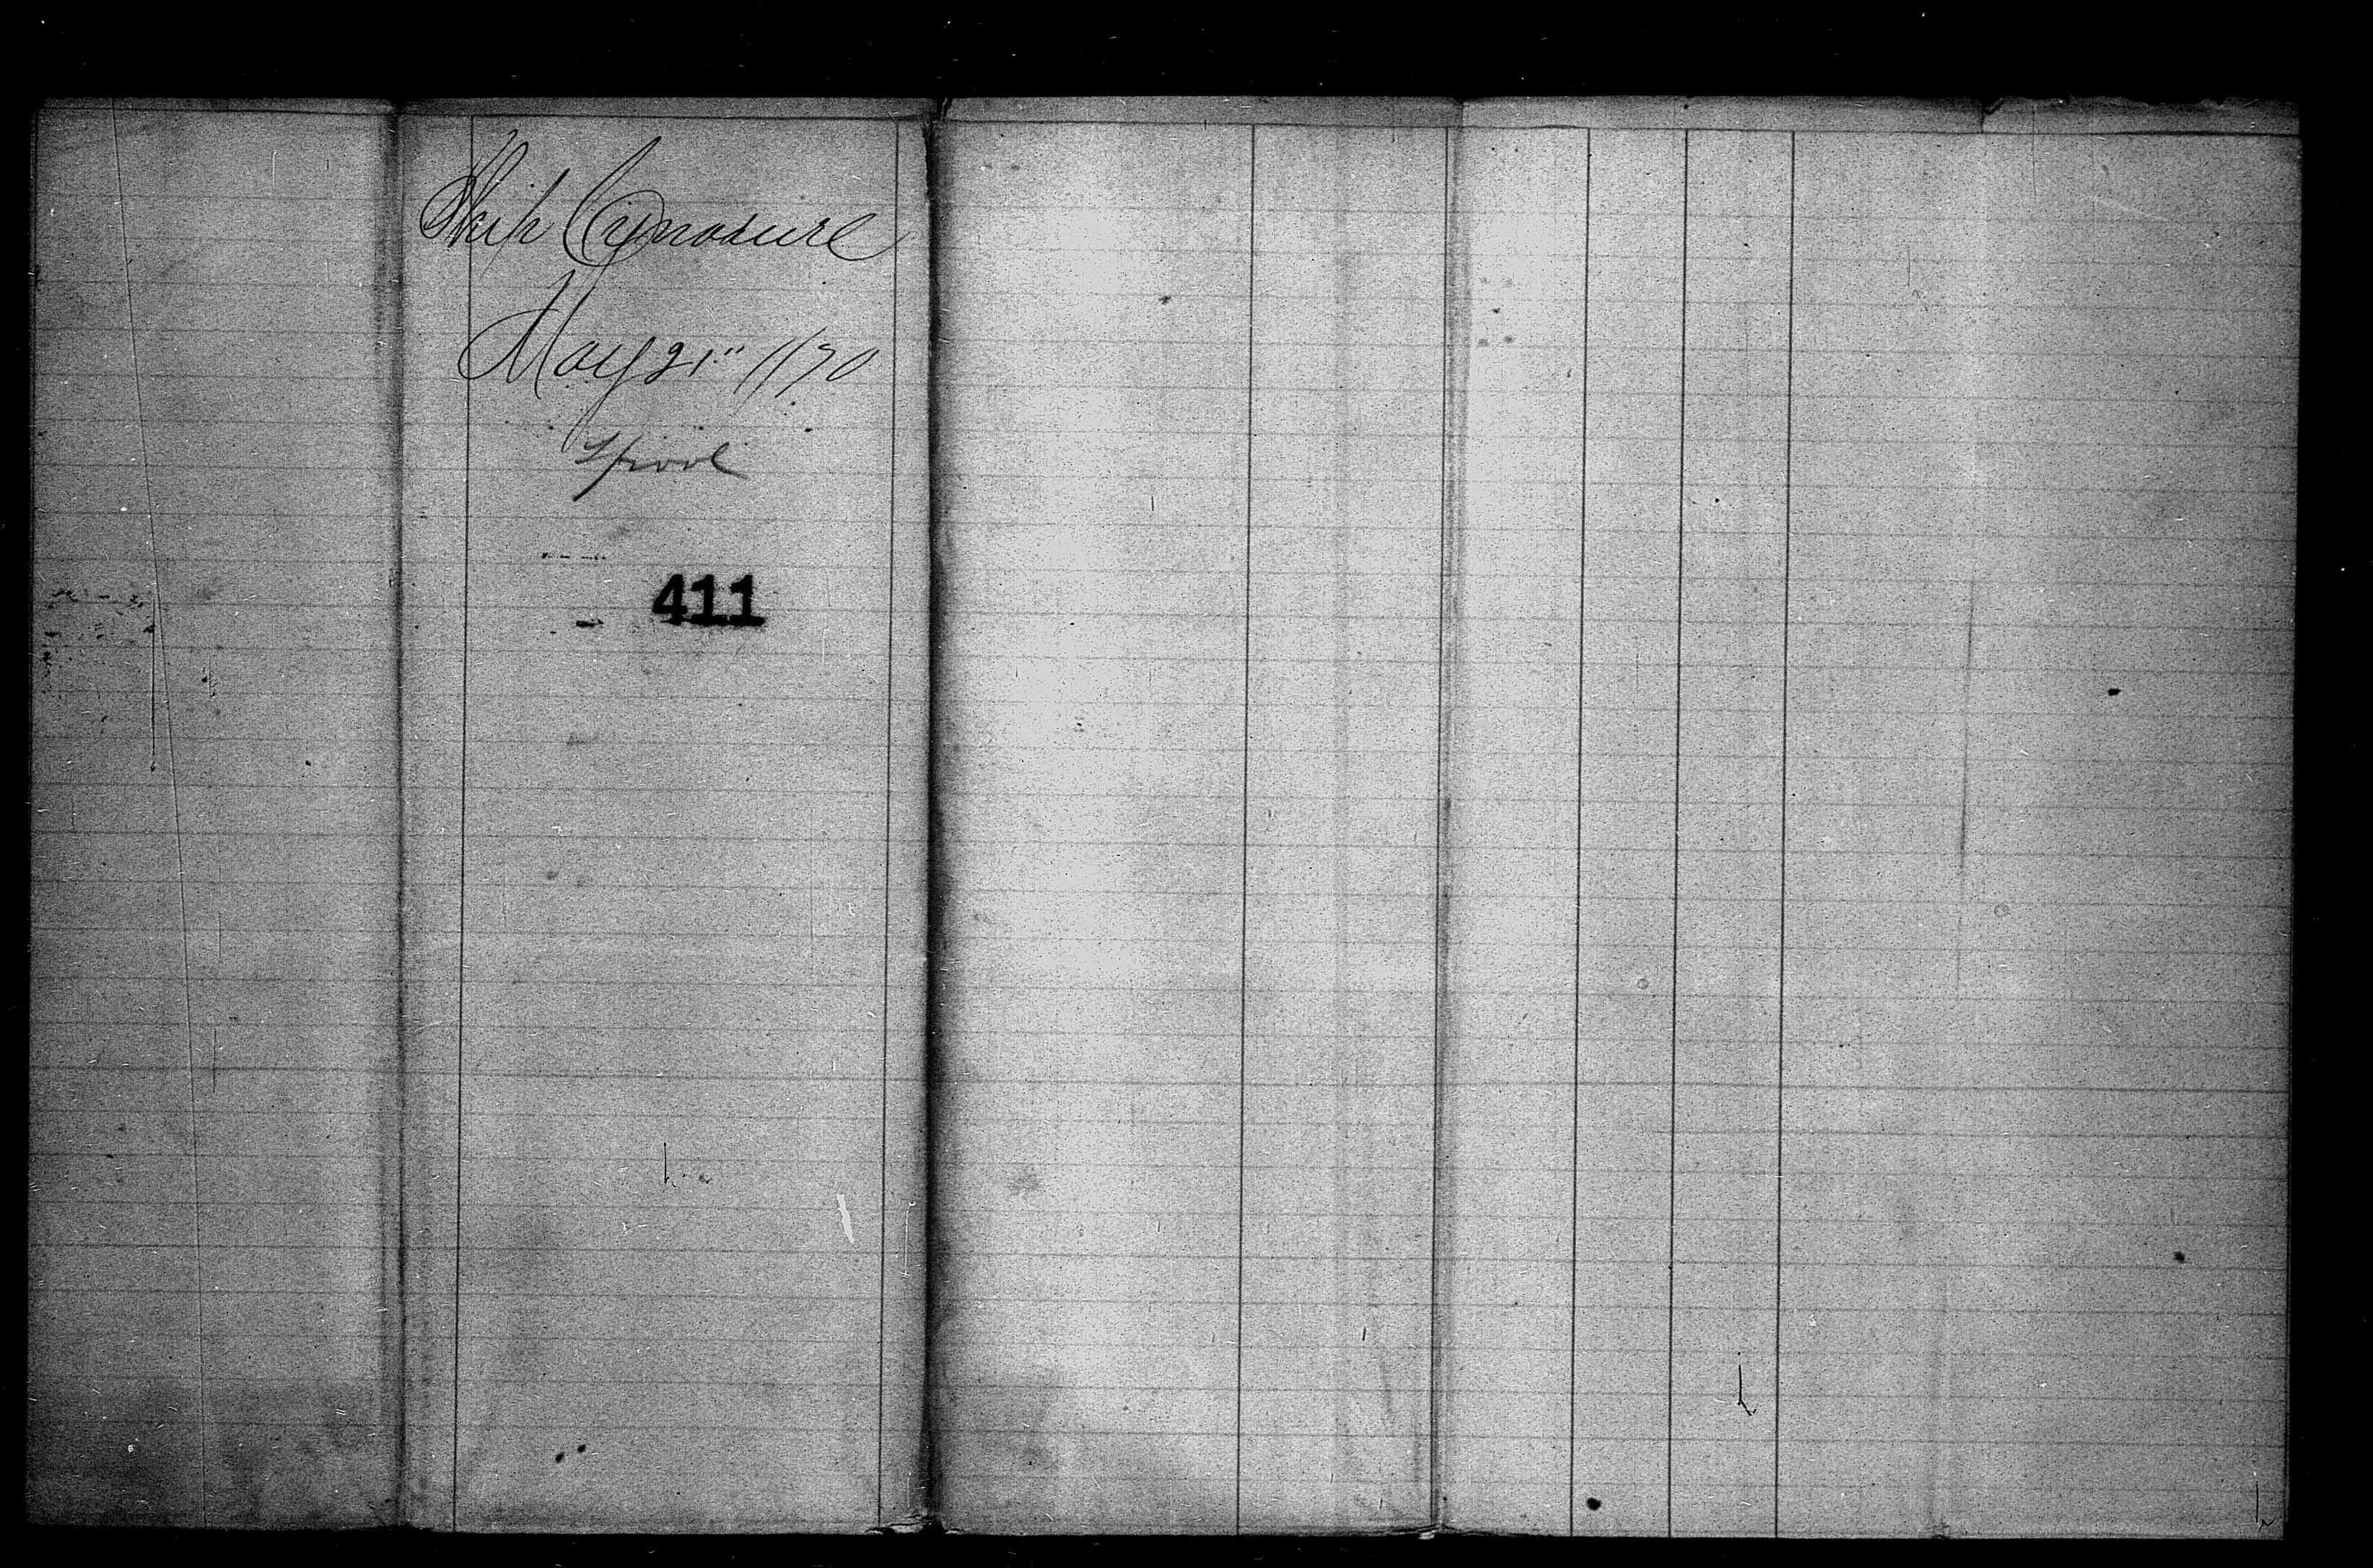 Ship Cynosure
May 21" 1870
Lpool
411